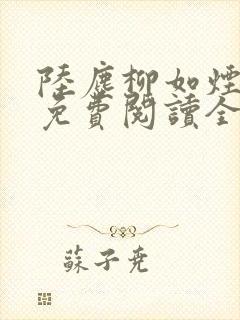 陸塵柳如煙
免費閱讀全
蘇子堯